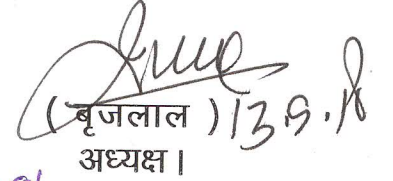 ( बृजलाल ) 13.9.18
अध्यक्ष।